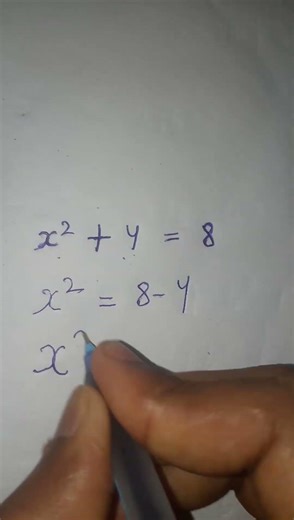 x² + 4 = 8
x² = 8 - 4
x²